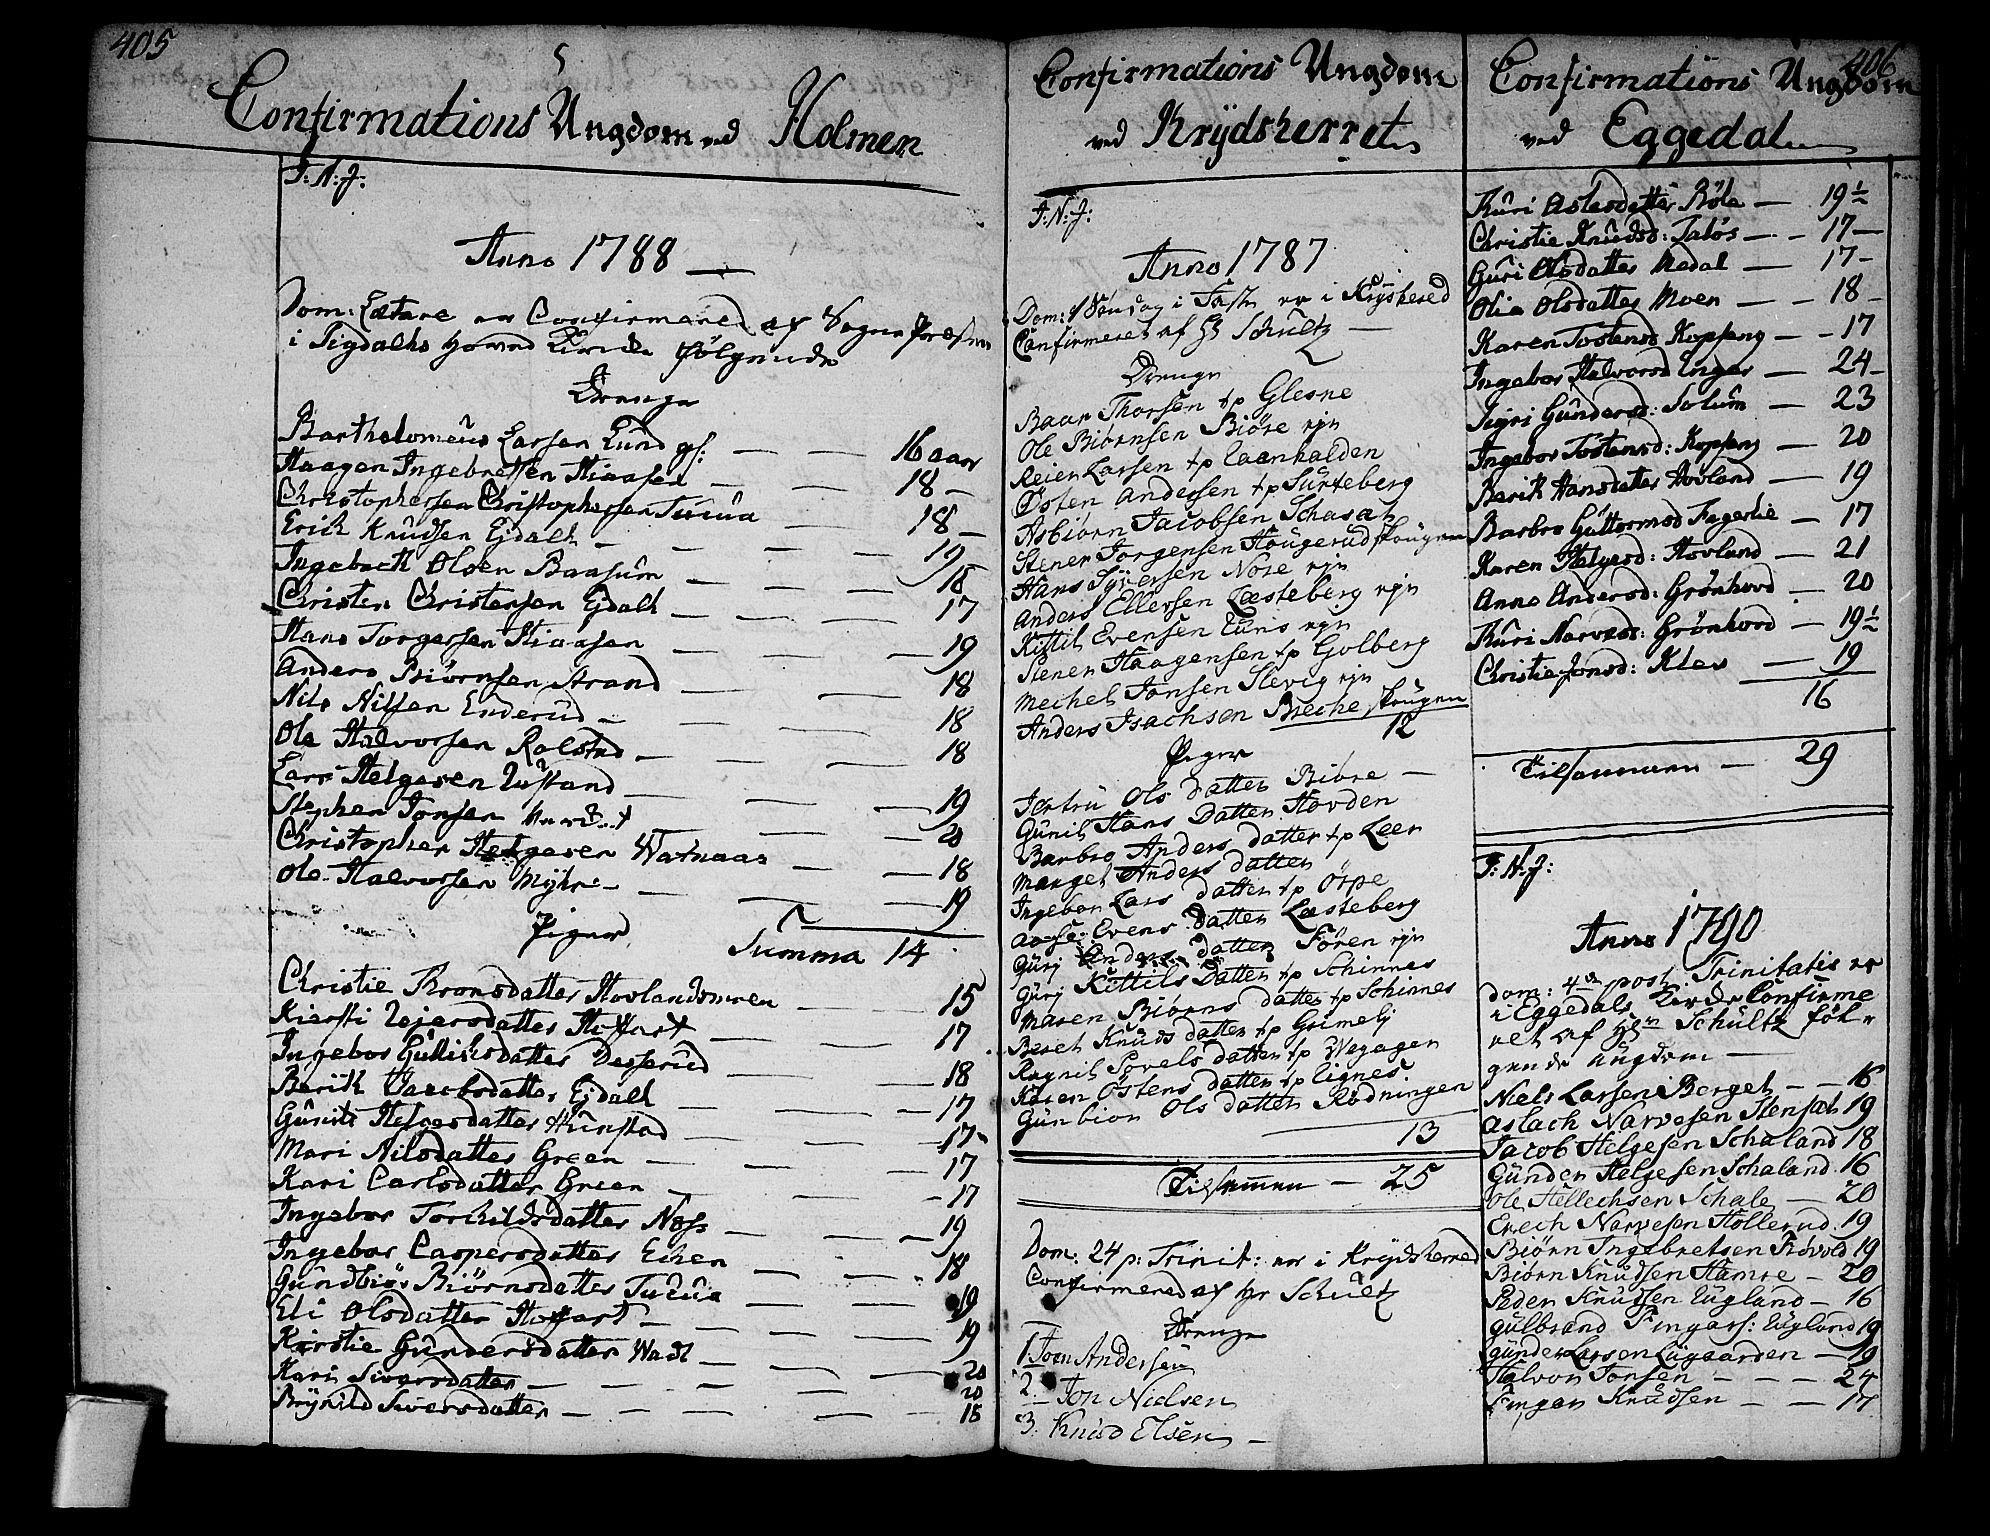 405
Confirmations Ungdom ved Holmen
I: N: J:
Anno 1788
Dom: Lætare er Confirmered af Sogne Præsten
i Sigdahls Hoved Kircke følgende
Drenge
Bartholomeus Larsen Lund gf: 16 aar
Haagen Ingebretsen Hiaasen 18
Christophersen Christophersen 18
Erik Knudsen Ejdahl 19
Ingebreth Olsen Baasum 18
Christen Christensen Ejdahl 17
Hans Torgersen Hiaasen 19
Anders Biørnsen Strand 18
Nils Nilsen Enderud 18
Ole Halvorsen Rolstad 18
Lars Helgesen 19
Stephen Jonsen 20
Christopher Helgesen Watnaas 18
Ole Halvorsen Myhre 19
Piger
Summa 14
Christie Tronsdatter Hovlandsmoen 15
Kiersti Rejersdatter Hoffart 17
Ingebor Gullichsdatter 18
Berith Jacobsdatter Ejdahl 17
Gunild Helgesdatter Hunstad 17
Mari Nilsdatter Green 17
Kari Carlsdatter Green 17
Ingebor Torchildsdatter Næss 19
Ingebor Caspersdatter Echen 18
Gundbiør Biørnsdatter 19
Eli Olsdatter Hoffart 19
Kirstie Gundersdatter Wadt 20
Kari Siversdatter 20
Brynild Siversdatter 18
Confirmations Ungdom
ved Krydsherret
I: N: J:
Anno 1787
Dom: 1 Søndag i Fast er i Krydsherred
Confirmeret af Hr Schultz
Drenge
Baar Thorsen tp Glesne
Ole Biørnsen Biøre ejn
Reier Larsen tp Laanhalden
Østen Andersen tp Surteberg
Asbiørn Jacobsen Schasat
Stener Jorgensen Hougerudskougen
Hans Syversen Nore ejn
Anders Ellefsen Læsteberg ejn
Kittil Evensen Tunis ejn
Stener Haagensen tp Golberg
Mechel Jonsen Slevig ejn
Anders Isachsen Breche skougen
12
Piger
Jertru Ols datter Biøre
Gunil Hans Datter Hovden
Barbro Anders datter tp Leer
Marget Anders datter
Ingebor Lars datter tp Ørpe
Aase Evens datter Læsteberg
Gurj Anders datter Søren ejn
Gurj Kittils Datter tp Schinnes
Maren Biørns datter tp Schinnes
Beret Knuds datter tp Grimelj
Ragnil Povels datter tp Wegagen
Karen Østens datter tp Eignes
Gunbior Ols datter Rødningen
13
Tilsammen 25
Dom: 24 p: Trinit: er i Krydsherred
Confirmered af Hr Schultz
Drenge
1. Joen Andersen
2 Jon Nielsen
3. Knud Elsen
406
Confirmations Ungdom
ved Eggedal
Kuri Aslesdatter Bøle 19½
Christie Knudsd: Taløs 17
Guri Olsdatter Nedal 17
Olia Olsdatter Moen 18
Karen Tostensd Kopseng 17
Ingebor Halvorsd Enger 24
Sigri Gundersd: Solum 23
Ingebor Tostensd: Kopseng 20
Berit Hansdatter Hovland 19
Barbro Guttormsd Fagerlie 17
Karen Helgesd: Hovland 21
Anne Andersd: Grønhord 20
Kuri Narvesd: Grønhord 19½
Christie Jonsd: Klev 19
16
Tilsammen 29
I: N: J:
Anno 1790
Dom: 4de post Trinitatis er
i Eggedals Kircke Confirme
ret af Hrn Schultz føl-
gende ungdom
Niels Larsen Berget 16
Aslach Narvesen Stensat 19
Jacob Helgesen Schaland 18
Gunder Helgesen Schaland 16
Ole Hellechsen Schale 20
Erech Narvesen Hollerud 19
Biørn Ingebretsen Frøvold 19
Biørn Knudsen Hamre 20
Peder Knudsen Eugland 16
Gulbrand Fingars: Eugland 19
Gunder Larsen Lugaarden 19
Halvor Jonsen 24
Fingar Knudsen 17